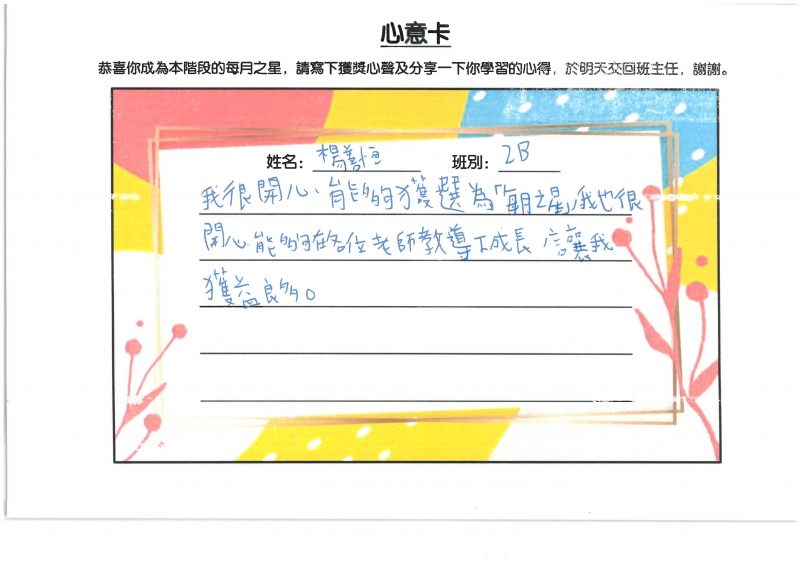 心意卡
恭喜你成為本階段的每月之星，請寫下獲獎心聲及分享一下你學習的心得，於明天交回班主任，謝謝。
姓名：楊善恒 班別：2B
我很開心、能夠獲選為「每月之星」，我也很
開心能夠在各位老師教導下成長，讓我
獲益良多。